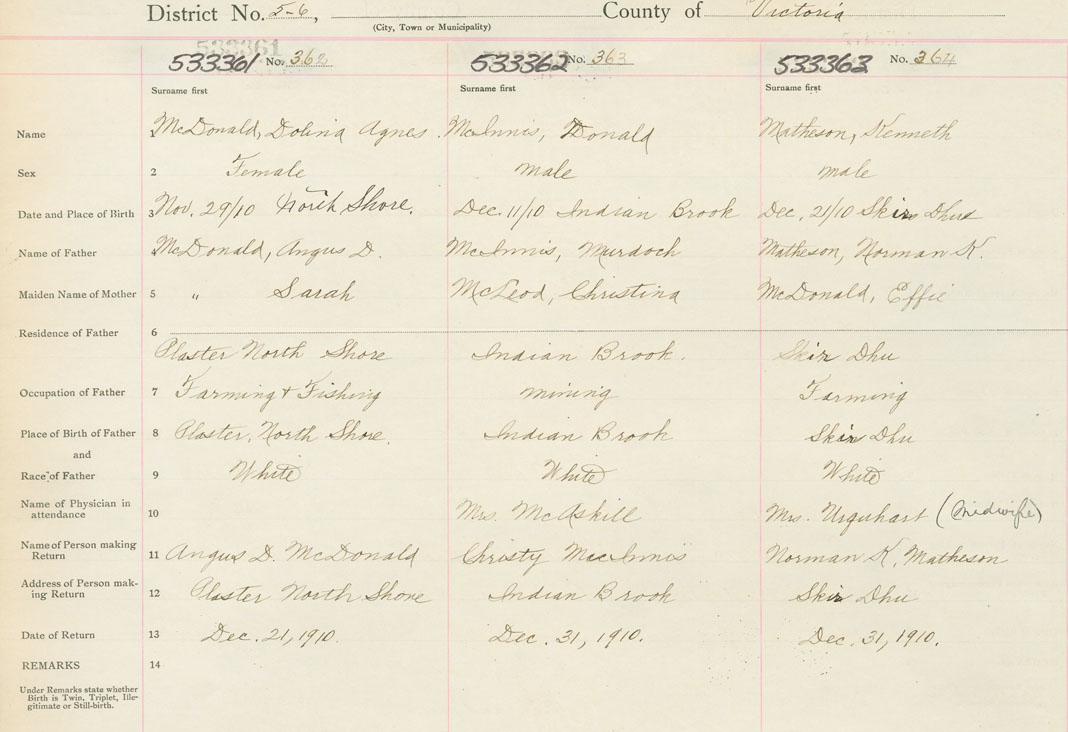 District No. 5-6, County of Victoria
(City, Town or Municipality)
533361 No. 362 533362 No. 363 533363 No. 364
Surname first Surname first Surname first
Name 1 McDonald, Dolina Agnes. McInnis, Donald Matheson, Kenneth
Sex 2 Female male male
Date and Place of Birth 3 Nov. 29/10 North Shore. Dec. 11/10 Indian Brook Dec. 21/10 Skir Dhu
Name of Father 4 McDonald, Angus D. McInnis, Murdoch Matheson, Norman K.
Maiden Name of Mother 5 " Sarah McLeod, Christina McDonald, Effie
Residence of Father 6
Plaster North Shore Indian Brook. Skir Dhu
Occupation of Father 7 Farming & Fishing mining Farming
Place of Birth of Father 8 Plaster, North Shore. Indian Brook Skir Dhu
and
Race of Father 9 White White White
Name of Physician in
attendance 10 Mrs. McAskill Mrs. Urquhart (midwife)
Name of Person making
Return 11 Angus D. McDonald Christy MacInnis Norman K. Matheson
Address of Person mak-
ing Return 12 Plaster North Shore Indian Brook Skir Dhu
Date of Return 13 Dec. 21, 1910. Dec. 31, 1910. Dec. 31, 1910.
REMARKS 14
Under Remarks state whether
Birth is Twin, Triplet, Ille-
gitimate or Still-birth.